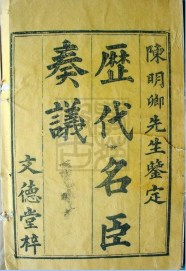 陳明卿先生鑒定
歷代名臣
奏議
文德堂梓